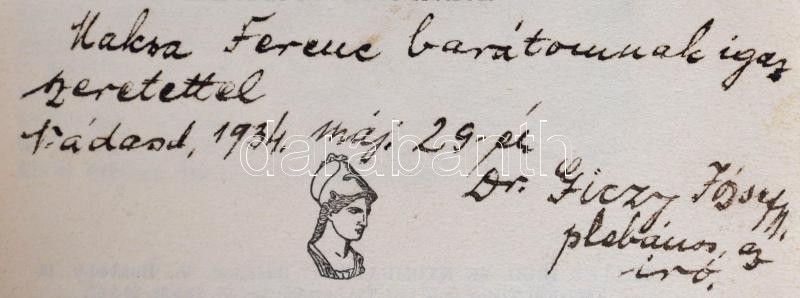 Maksa Ferenc barátomnak igaz
szeretettel
Nádasd, 1934. máj. 29-én
darabanth
Dr. Giczy József
plebános, az
író.